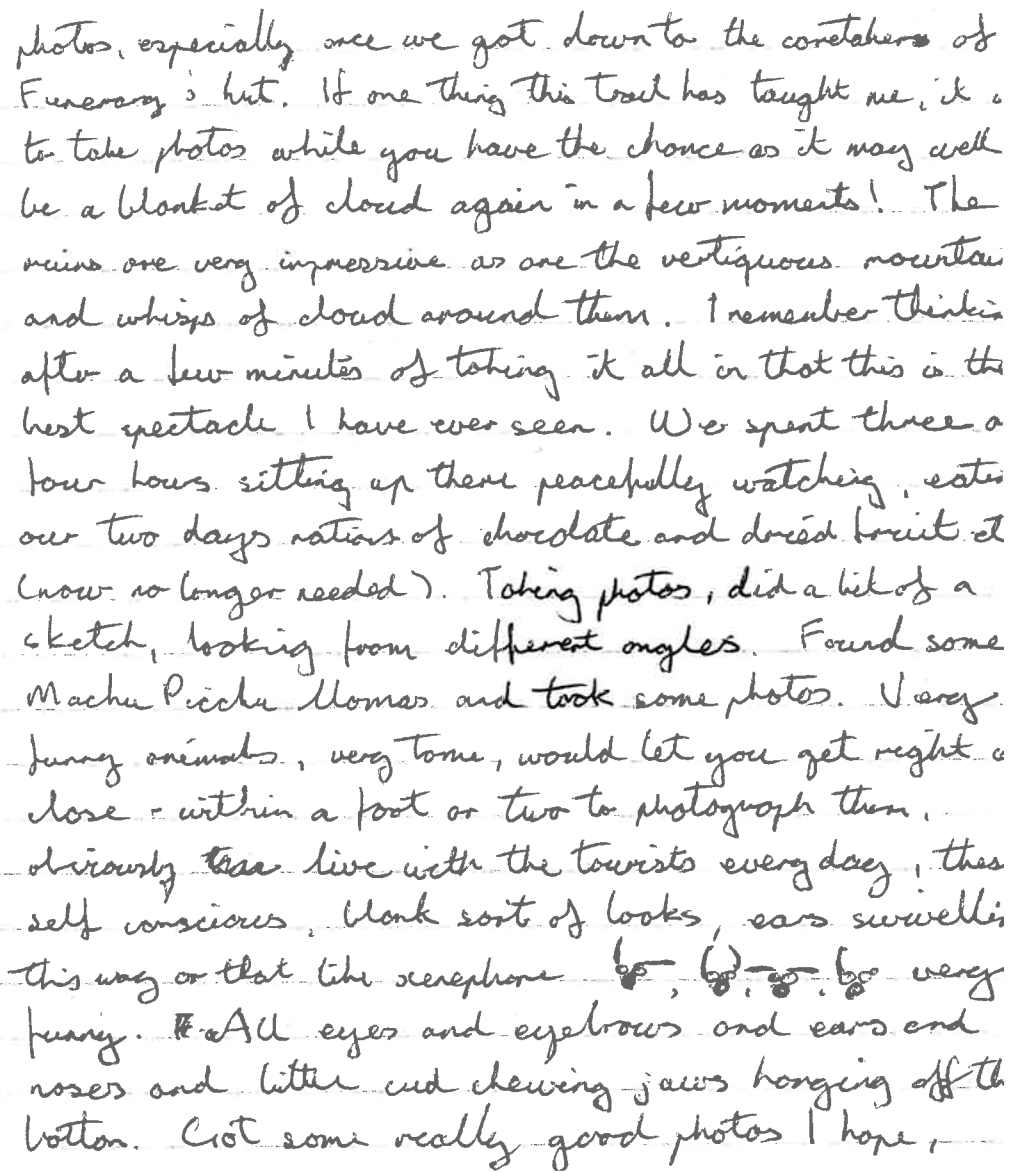 photos, especially once we got down to the caretakers of
Funerary's hut. If one thing this trail has taught me, it
to take photos while you have the chance as it may well
be a blanket of cloud again in a few moments! The
ruins are very impressive as are the vertiguous mountai
and whisps of cloud around them. I remember thinkin
after a few minutes of taking it all in that this is the
best spectacle I have ever seen. We spent three o
four hours sitting up there peacefully watching, eatin
our two days rations of chocolate and dried fruit et
(now no longer needed). Taking photos, did a bit of a
sketch, looking from different angles. Found some
Machu Picchu llamas and took some photos. Very
funny animals, very tame, would let you get right
close - within a foot or two to photograph them,
obviously live with the tourists every day, thes
self conscious, blank sort of looks, ears swivellin
this way or that like , , , very
funny. All eyes and eyebrows and ears and
noses and little cud chewing jaws hanging off th
bottom. Got some really good photos I hope,